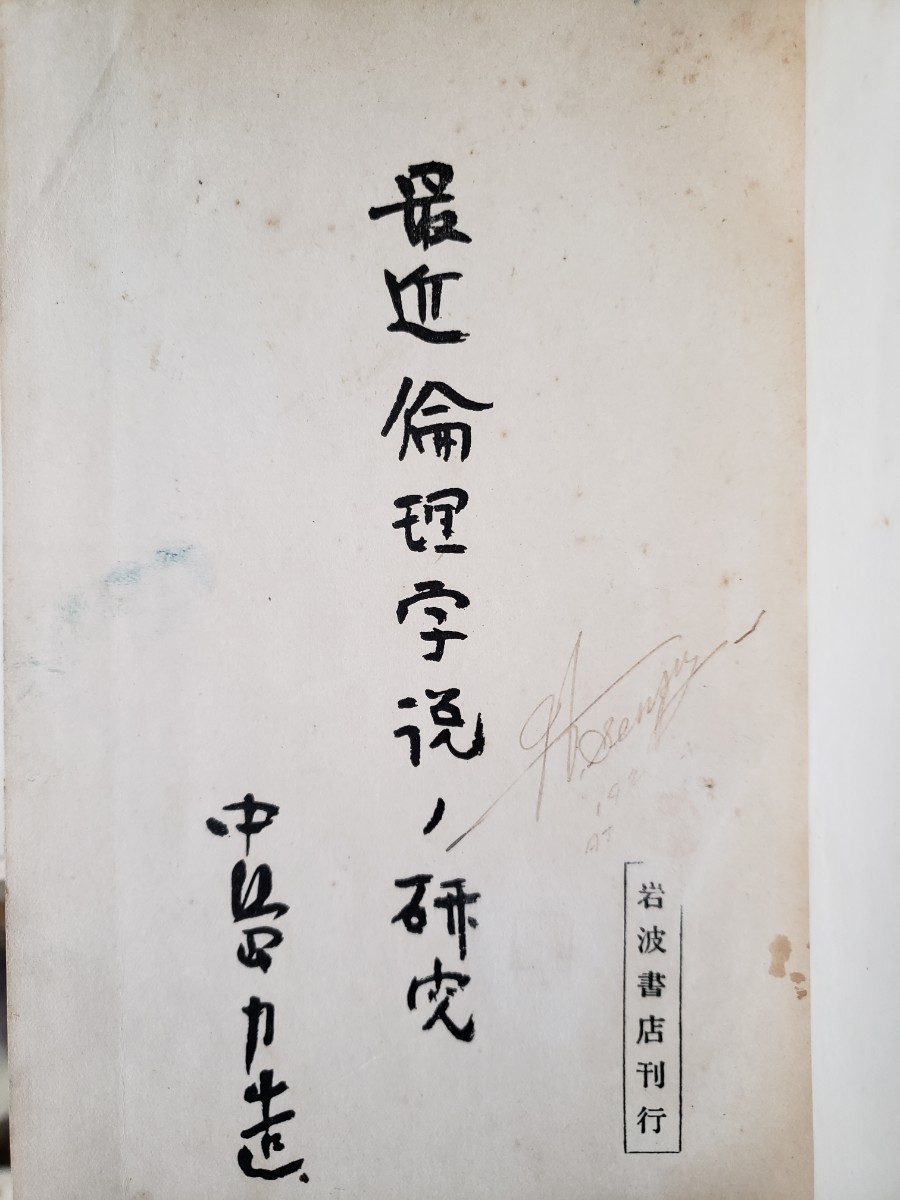 最近倫理学説ノ研究
中島力造
岩波書店刊行